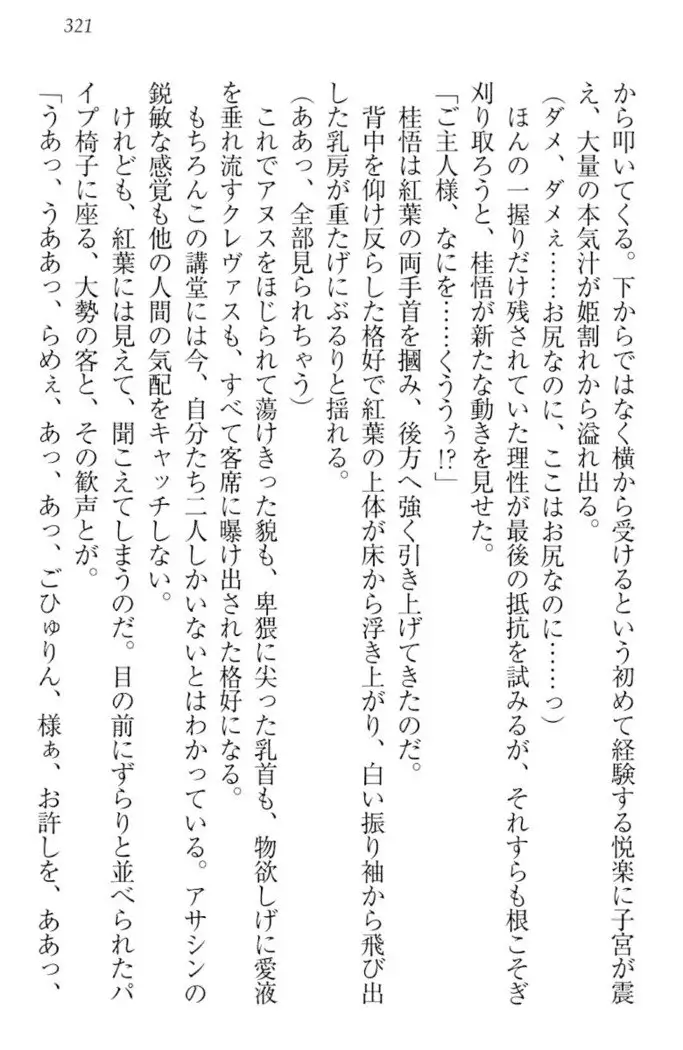 321
から叩いてくる。下からではなく横から受けるという初めて経験する悦楽に子宮が震
え、大量の本気汁が姫割れから溢れ出る。
（ダメ、ダメぇ……お尻なのに、ここはお尻なのに……っ）
ほんの一握りだけ残されていた理性が最後の抵抗を試みるが、それすらも根こそぎ
刈り取ろうと、桂悟が新たな動きを見せた。
「ご主人様、なにを……くううぅ!?」
桂悟は紅葉の両手首を摑み、後方へ強く引き上げてきたのだ。
背中を仰け反らした格好で紅葉の上体が床から浮き上がり、白い振り袖から飛び出
した乳房が重たげにぶるりと揺れる。
（ああっ、全部見られちゃう）
これでアヌスをほじられて蕩けきった貌も、卑猥に尖った乳首も、物欲しげに愛液
を垂れ流すクレヴァスも、すべて客席に曝け出された格好になる。
もちろんこの講堂には今、自分たち二人しかいないとはわかっている。アサシンの
鋭敏な感覚も他の人間の気配をキャッチしない。
けれども、紅葉には見えて、聞こえてしまうのだ。目の前にずらりと並べられたパ
イプ椅子に座る、大勢の客と、その歓声とが。
「うあっ、うああっ、らめぇ、あっ、あっ、ごひゅりん、様ぁ、お許しを、ああっ、